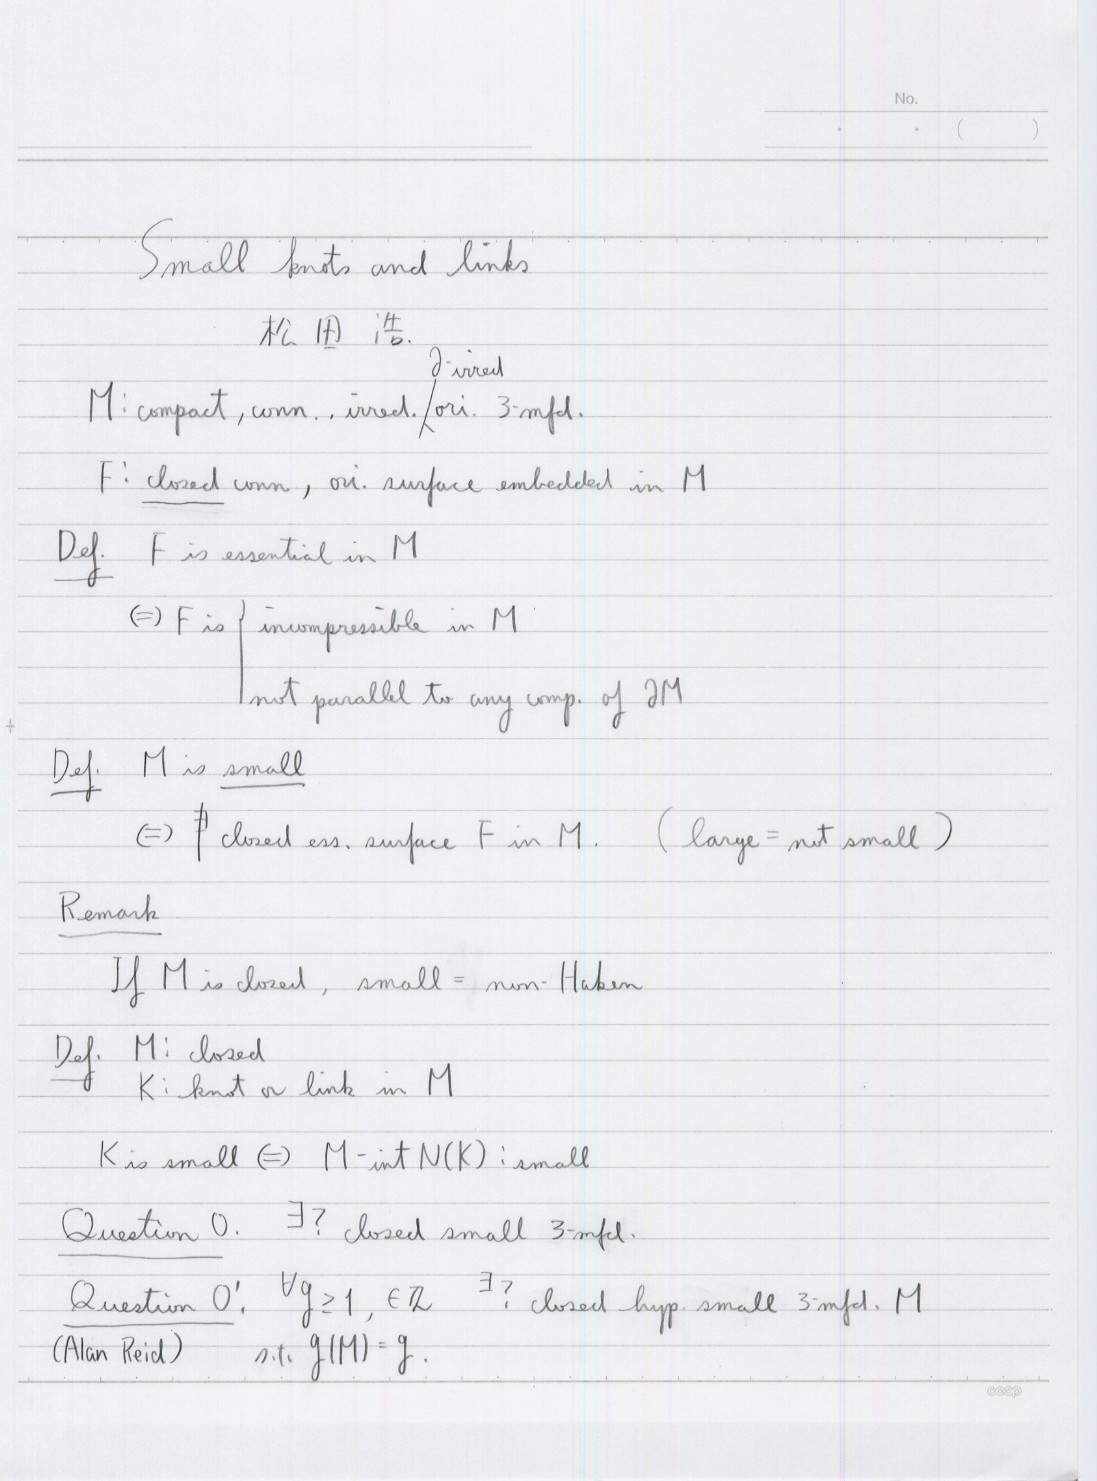 No.
· · ( )
Small knots and links
松田 浩.
∂-irred
M: compact, conn., irred. / ori. 3-mfd.
F: closed conn, ori. surface embedded in M
Def. F is essential in M
⇔ F is { incompressible in M
not parallel to any comp. of ∂M
Def. M is small
⇔ ∄ closed ess. surface F in M. (large = not small)
Remark
If M is closed, small = non-Haken
Def. M: closed
K: knot or link in M
K is small ⇔ M-int N(K): small
Question 0. ∃? closed small 3-mfd.
Question 0'. ∀g≥1, ∈ℤ ∃? closed hyp. small 3-mfd. M
(Alan Reid) s.t. g(M)=g.
coop